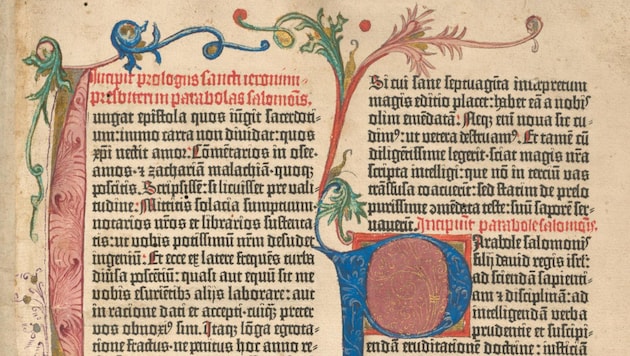 Incipit prologus sancti ieronimi
presbiteri in parabolas salomonis.
Iungat epistola quos iūgit sacerdoti-
um: immo carta non dividat: quos
xp̄i nectit amor. Cōmētarios in osee.
amos. ⁊ zachariam malachiā. quoqꝫ
poscitis. Scripsissē: si licuisset pre vali-
tudine. Mittitis solacia sumptuum.
notarios nr̄os et librarios sustenta-
tis: ut vobis potissimum nr̄m desudet
ingeniū. Et ecce ex latere freqūes turba
diūsa poscētiū: quasi aut equū sit me
vobis esuriētibꝫ alijs laborare: aut
in ratione dati et accepti. cuiqꝫ preter
vos obnoxiꝰ sim. Itaqꝫ lōga egrota-
tione fractus. ne penitus hoc anno re-
Si cui sane septuaginta interpretum
magis editio placet: habet eā a nobis
olim emēdatā. Neqꝫ em̄ nova sic cu-
dimꝰ: ut vetera destruamꝰ. Et tamē cū
diligētissime legerit. sciat magis nr̄a
scripta intelligi: que nō in terciū vas
trāsfusa coacuerīt: sed statim de prelo
purissime cōmēdata teste: suū saporē ser-
vaverīt. Incipiunt parabole salomōis
Parabole salomonis
filij david regis isrl̄:
ad sciendā sapienti-
am ⁊ disciplinā: ad
intelligendā verba
prudentie et suscipi-
endā eruditationē doctrine: iusticiā